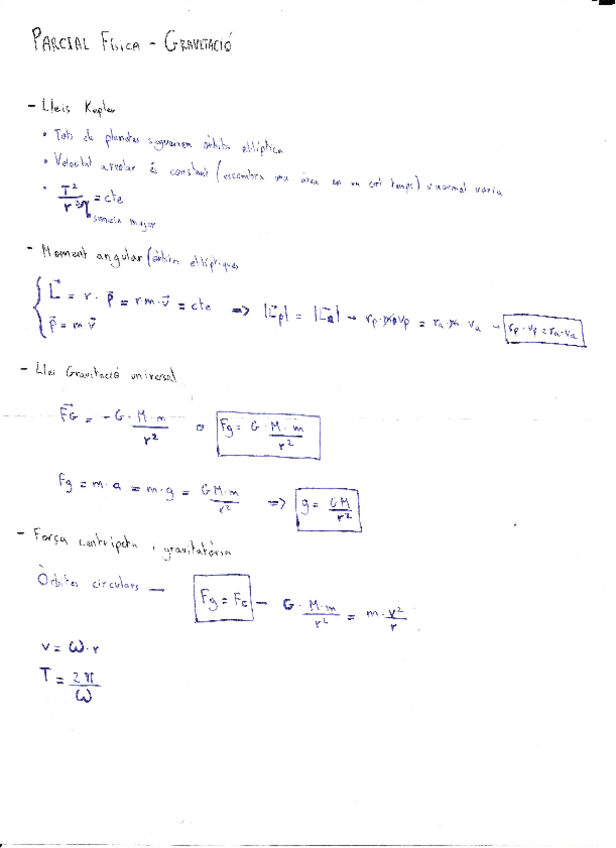 PARCIAL FÍSICA - GRAVITACIÓ
- Lleis Kepler
• Tots els planetes segueixen òrbita el·líptica
• Velocitat areolar és constant (escombra una área en un cert temps) v normal varia
• T²/r³ = cte
semieix major
- Moment angular (òrbites el·líptiques
L⃗ = r · p⃗ = r m · v⃗ = cte => |L⃗p| = |L⃗a| → rp · m · vp = ra · m · va → rp · vp = ra · va
p⃗ = m · v⃗
- Llei Gravitació universal
F⃗G = - G · M · m / r² o Fg = G · M · m / r²
Fg = m · a = m · g = G M · m / r² => g = GM / r²
- Força centrípeta i gravitatòria
Òrbites circulars — Fg = Fc — G · M · m / r² = m · v² / r
v = ω · r
T = 2π / ω